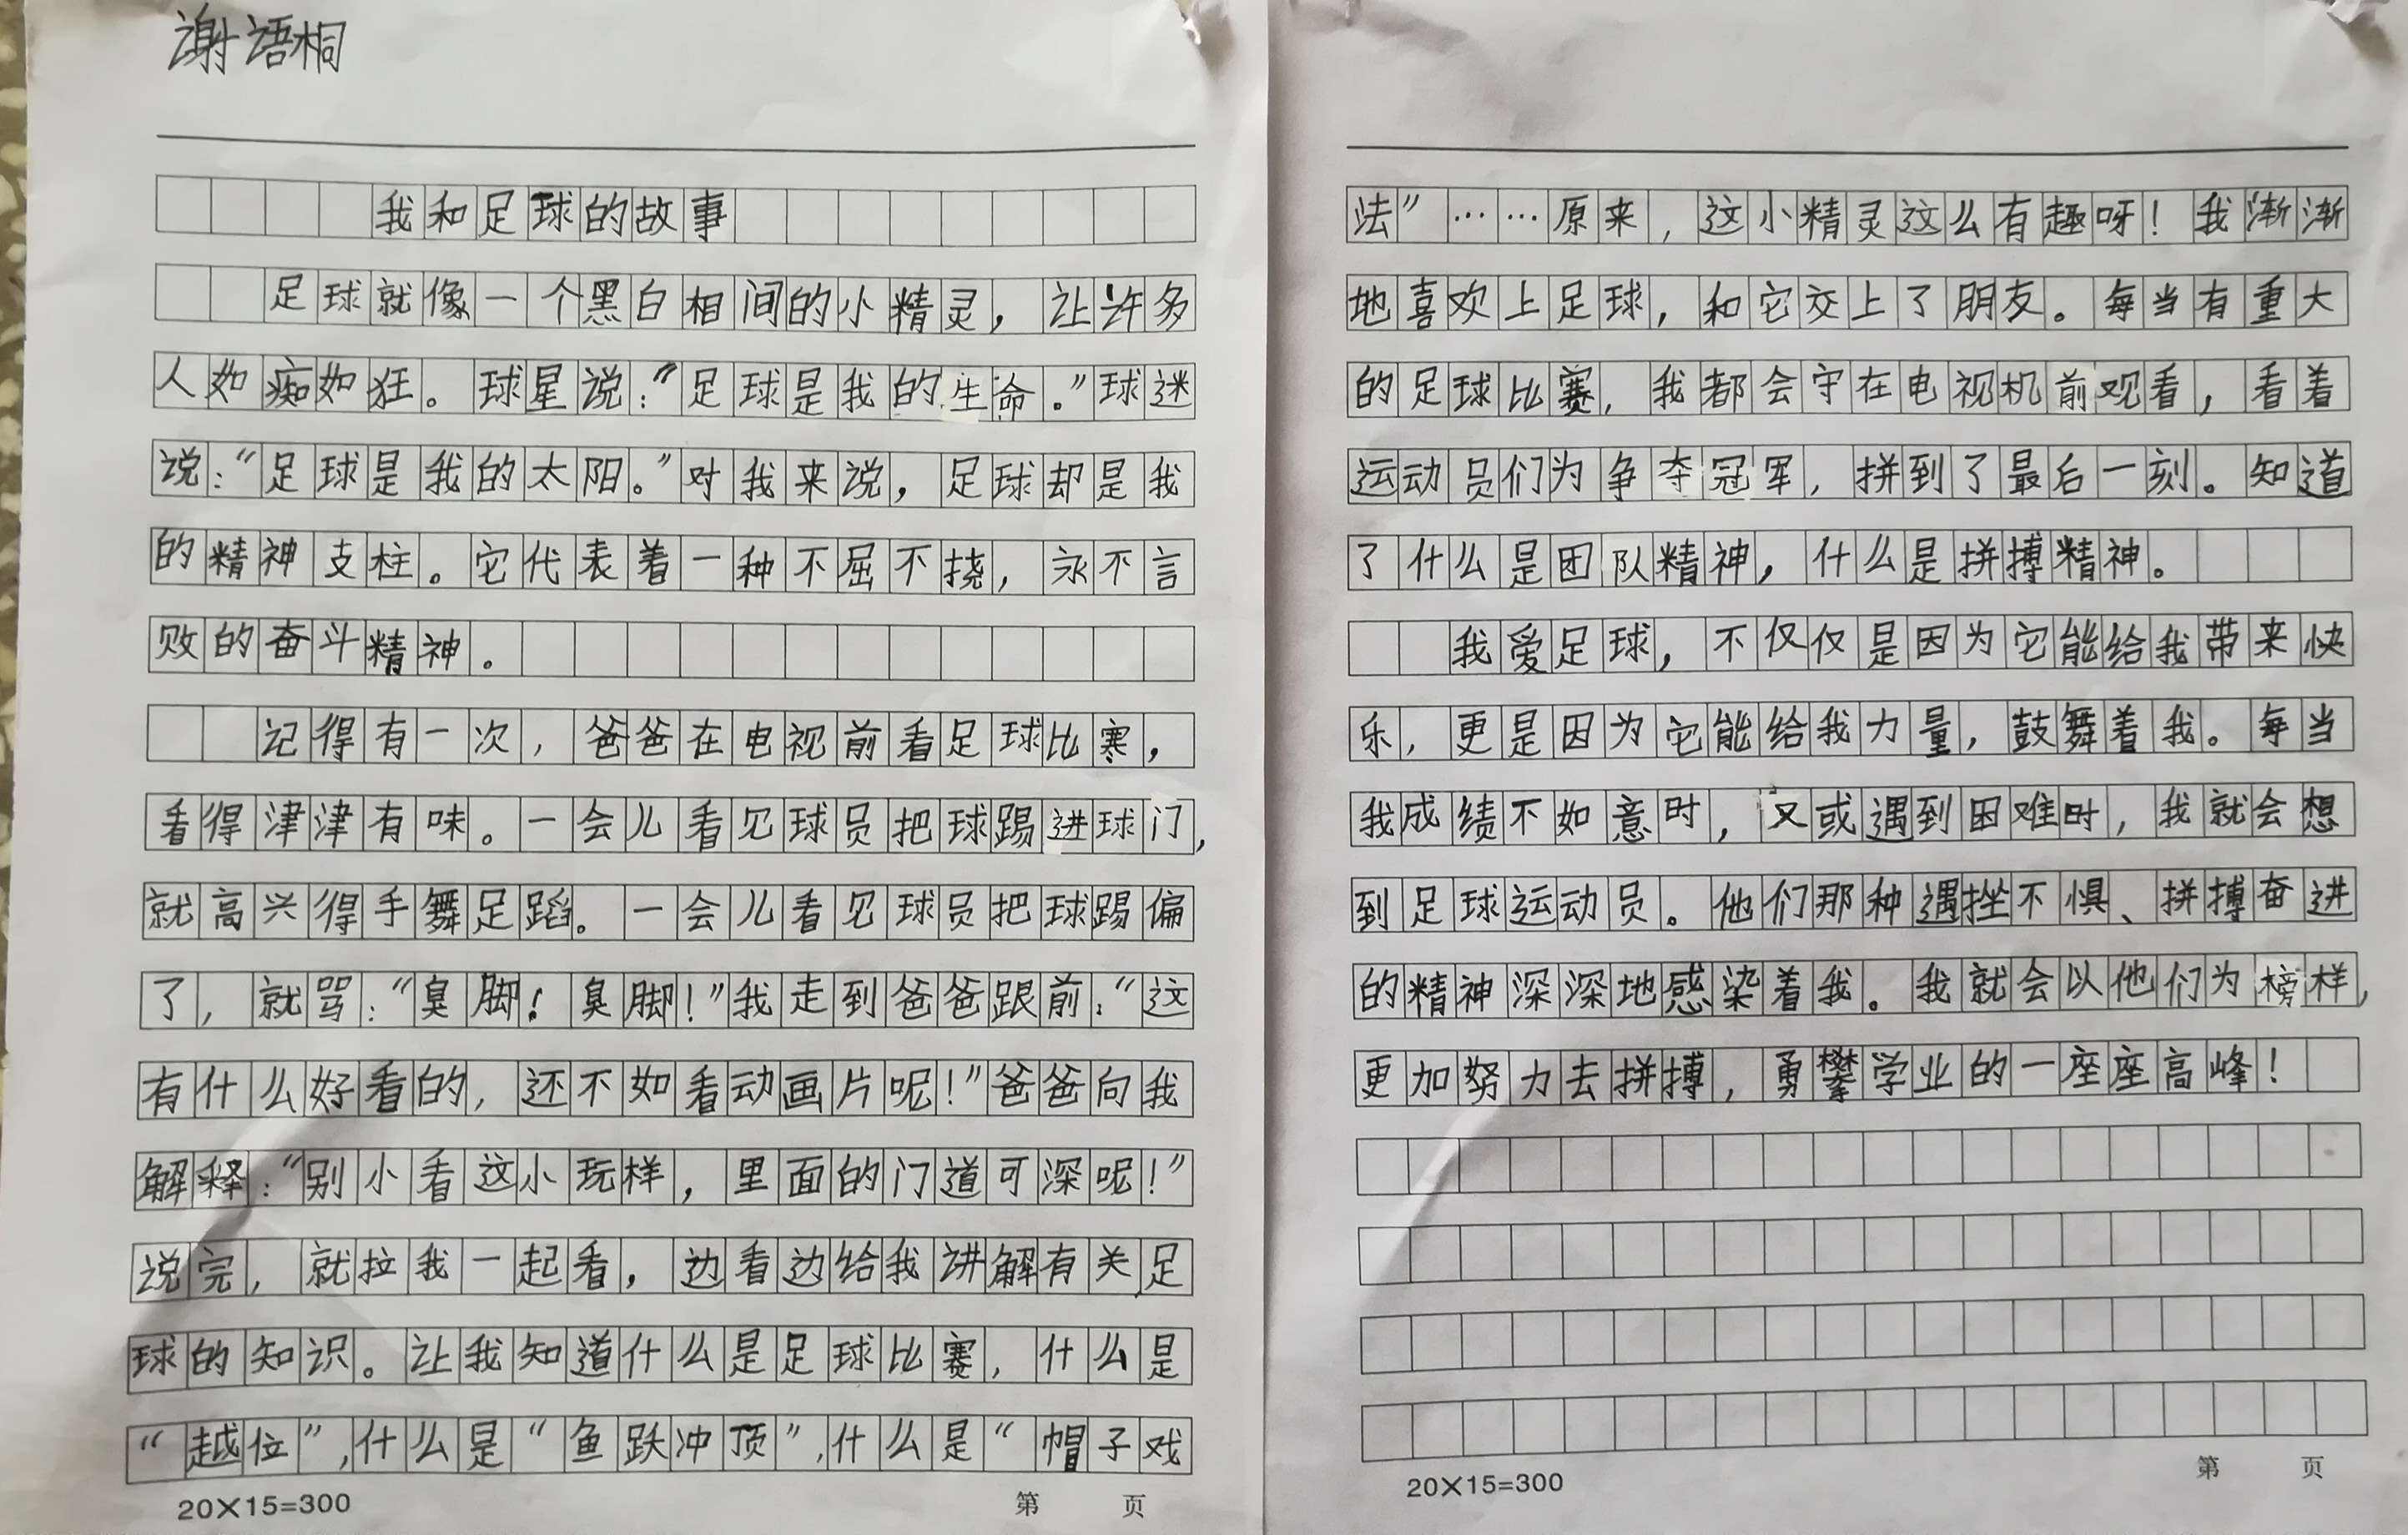 谢语桐
我和足球的故事
足球就像一个黑白相间的小精灵，让许多
人如痴如狂。球星说：“足球是我的生命。”球迷
说：“足球是我的太阳。”对我来说，足球却是我
的精神支柱。它代表着一种不屈不挠，永不言
败的奋斗精神。
记得有一次，爸爸在电视前看足球比赛，
看得津津有味。一会儿看见球员把球踢进球门，
就高兴得手舞足蹈。一会儿看见球员把球踢偏
了，就骂：“臭脚！臭脚！”我走到爸爸跟前：“这
有什么好看的，还不如看动画片呢！”爸爸向我
解释：“别小看这小玩样，里面的门道可深呢！”
说完，就拉我一起看，边看边给我讲解有关足
球的知识。让我知道什么是足球比赛，什么是
“越位”，什么是“鱼跃冲顶”，什么是“帽子戏
20×15=300 第 页
法”……原来，这小精灵这么有趣呀！我渐渐
地喜欢上足球，和它交上了朋友。每当有重大
的足球比赛，我都会守在电视机前观看，看着
运动员们为争夺冠军，拼到了最后一刻。知道
了什么是团队精神，什么是拼搏精神。
我爱足球，不仅仅是因为它能给我带来快
乐，更是因为它能给我力量，鼓舞着我。每当
我成绩不如意时，又或遇到困难时，我就会想
到足球运动员。他们那种遇挫不惧、拼搏奋进
的精神深深地感染着我。我就会以他们为榜样，
更加努力去拼搏，勇攀学业的一座座高峰！
20×15=300 第 页